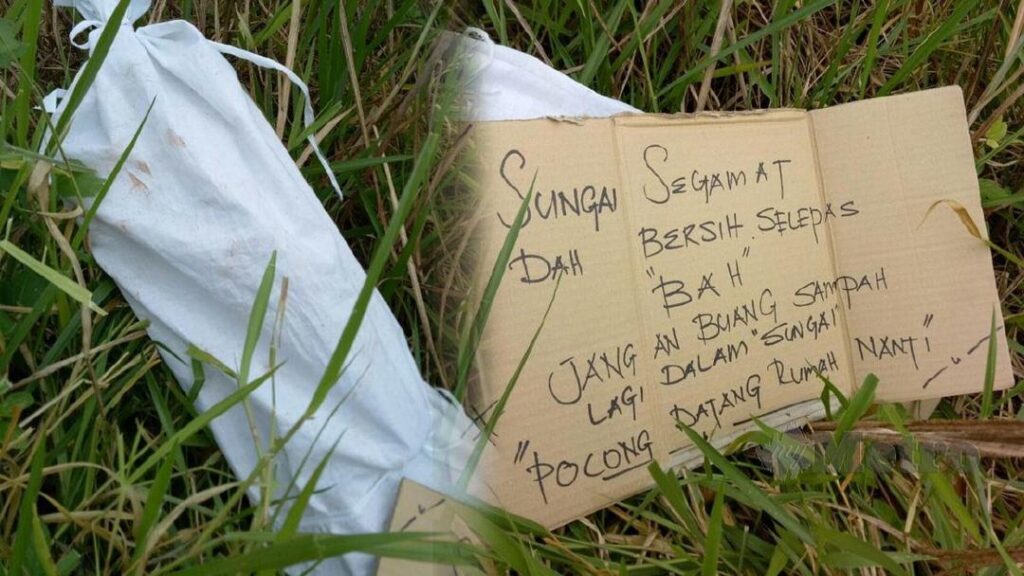 SUNGAI SEGAMAT
DAH BERSIH SELEPAS
"BAH"
JANGAN BUANG SAMPAH
LAGI DALAM "SUNGAI"
"POCONG DATANG RUMAH NANTI"